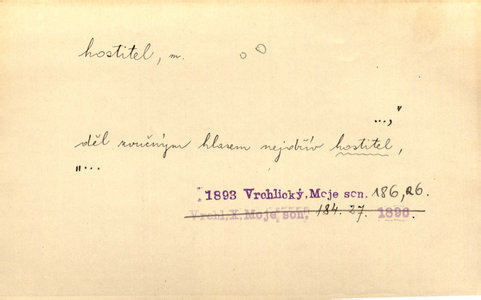 hostitel, m.
...,"
děl zvučným hlasem nejdřív hostitel,
"...
1893 Vrchlický, Moje son. 186, 26.
Vrchl. X, Moje son. 184. 27. 1896.